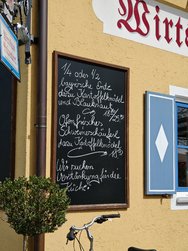 Wirts
1/4 oder 1/2
bayrische Ente
dazu Kartoffelknödel
und Blaukraut
Ofenfrisches
Schweineschäuferl
dazu Kartoffelknödel
Wir suchen
Verstärkung für die
Küche